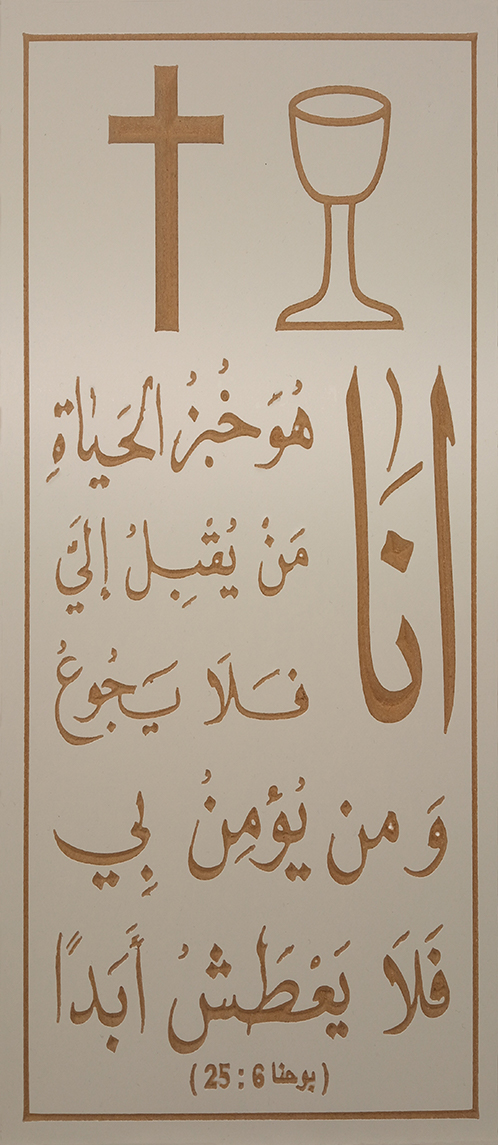 انَا
هُوَ خُبْزُ الحَيَاةِ
مَنْ يُقْبِلُ إليَّ
فَلَا يَجُوعُ
وَ من يُؤمِنُ بِي
فَلَا يَعْطَشُ أَبَدًا
( يوحنا 6 : 25 )